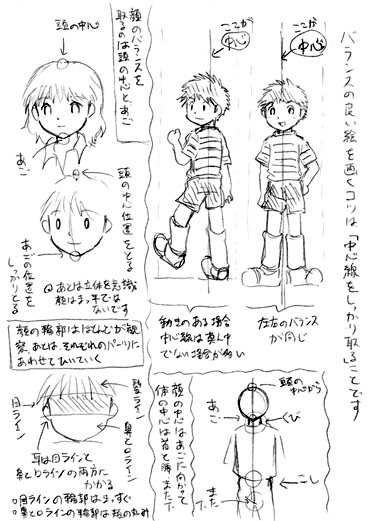 バランスの良い絵を画くコツは「中心線をしっかり取る」ことです
ここが
中心
ここが
中心
左右のバランス
が同じ
動きのある場合
中心線は真ん中
でない場合が多い
顔のバランスを
取るのは頭の中心と、あご
頭の中心
あご
頭の中心位置をとる
あごの位置を
しっかりとる
@あとは立体を意識
顔はまっ平では
ないです
顔の輪郭はほとんどが観
察、あとは、それぞれのパーツに
あわせてひいていく
髪ライン
目ライン
鼻と口ライン
耳は目ラインと
鼻と口ラインの両方に
かかる
○目ラインの輪郭はまっすぐ
○鼻と口ラインの輪郭は頬の丸み
顔の中心はあごに向かって
体の中心は首と腰また下
頭の中心から
あご
くび
こし
また
下